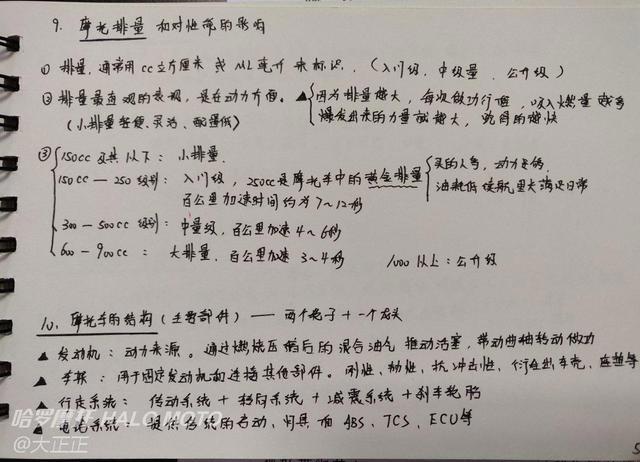 9. 摩托排量和对性能的影响
① 排量，通常用cc立方厘米 或 ML毫升 来标识．（入门级．中级量．公升级）
② 排量最直观的表现，是在动力方面。▲因为排量越大，每次做功行程，吸入燃量越多
（小排量轻便、灵活、配置低）爆发出来的力量就越大，跑得的越快
③ 150cc及其以下：小排量．
150cc — 250级别：入门级，250cc是摩托车中的黄金排量 买的人多，动力足够，
百公里加速时间约为7~12秒 油耗低 续航里 大 满足日常
300 — 500cc 级别：中量级，百公里加速 4~6秒
600 — 900cc：大排量．百公里加速 3~4秒 1000以上：公升级
10. 摩托车的结构（主要部件）—— 两个轮子 + 一个龙头
▲ 发动机：动力来源。通过燃烧压缩后的混合油气 推动活塞，带动曲轴转动做功
▲ 车架：用于固定发动机和连接其他部件．刚性、韧性、抗冲击性、衍生出车壳、座垫等
▲ 行走系统：传动系统 + 转向系统 + 减震系统 + 刹车轮胎
▲ 电器系统：提供系统的启动、 ABS、TCS、ECU等
哈罗摩托 HALO MOTO
@大正正
5